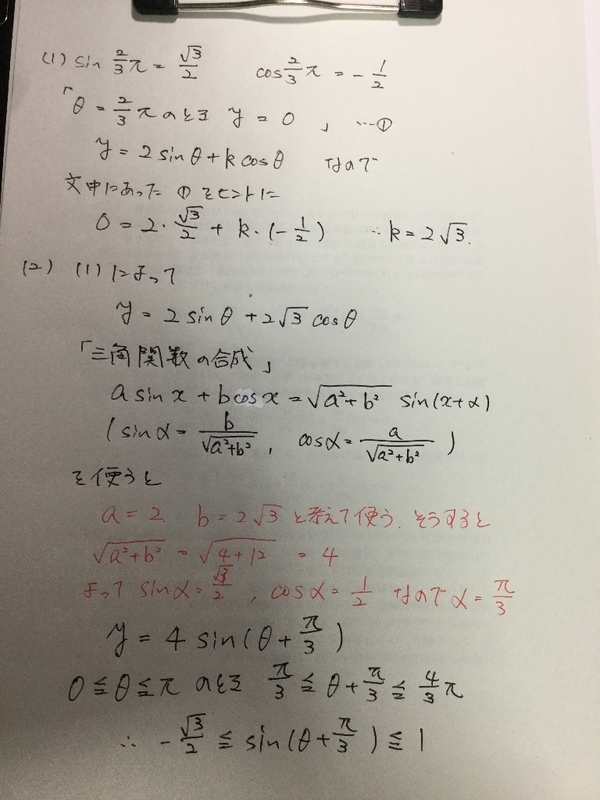 (1) sin 2/3 π = √3/2 cos 2/3 π = - 1/2
「θ = 2/3 π のとき y = 0 」 …①
y = 2 sin θ + k cos θ なので
文中にあった ① をヒントに
0 = 2・√3/2 + k・(- 1/2) ∴ k = 2√3.
(2) (1) によって
y = 2 sin θ + 2√3 cos θ
「三角関数の合成」
a sin x + b cos x = √(a²+b²) sin(x+α)
( sin α = b/√(a²+b²) , cos α = a/√(a²+b²) )
を使うと
a = 2 b = 2√3 と考えて使う. そうすると
√(a²+b²) = √(4+12) = 4
よって sin α = √3/2 , cos α = 1/2 なので α = π/3
y = 4 sin(θ + π/3)
0 ≦ θ ≦ π のとき π/3 ≦ θ + π/3 ≦ 4/3 π
∴ - √3/2 ≦ sin(θ + π/3) ≦ 1